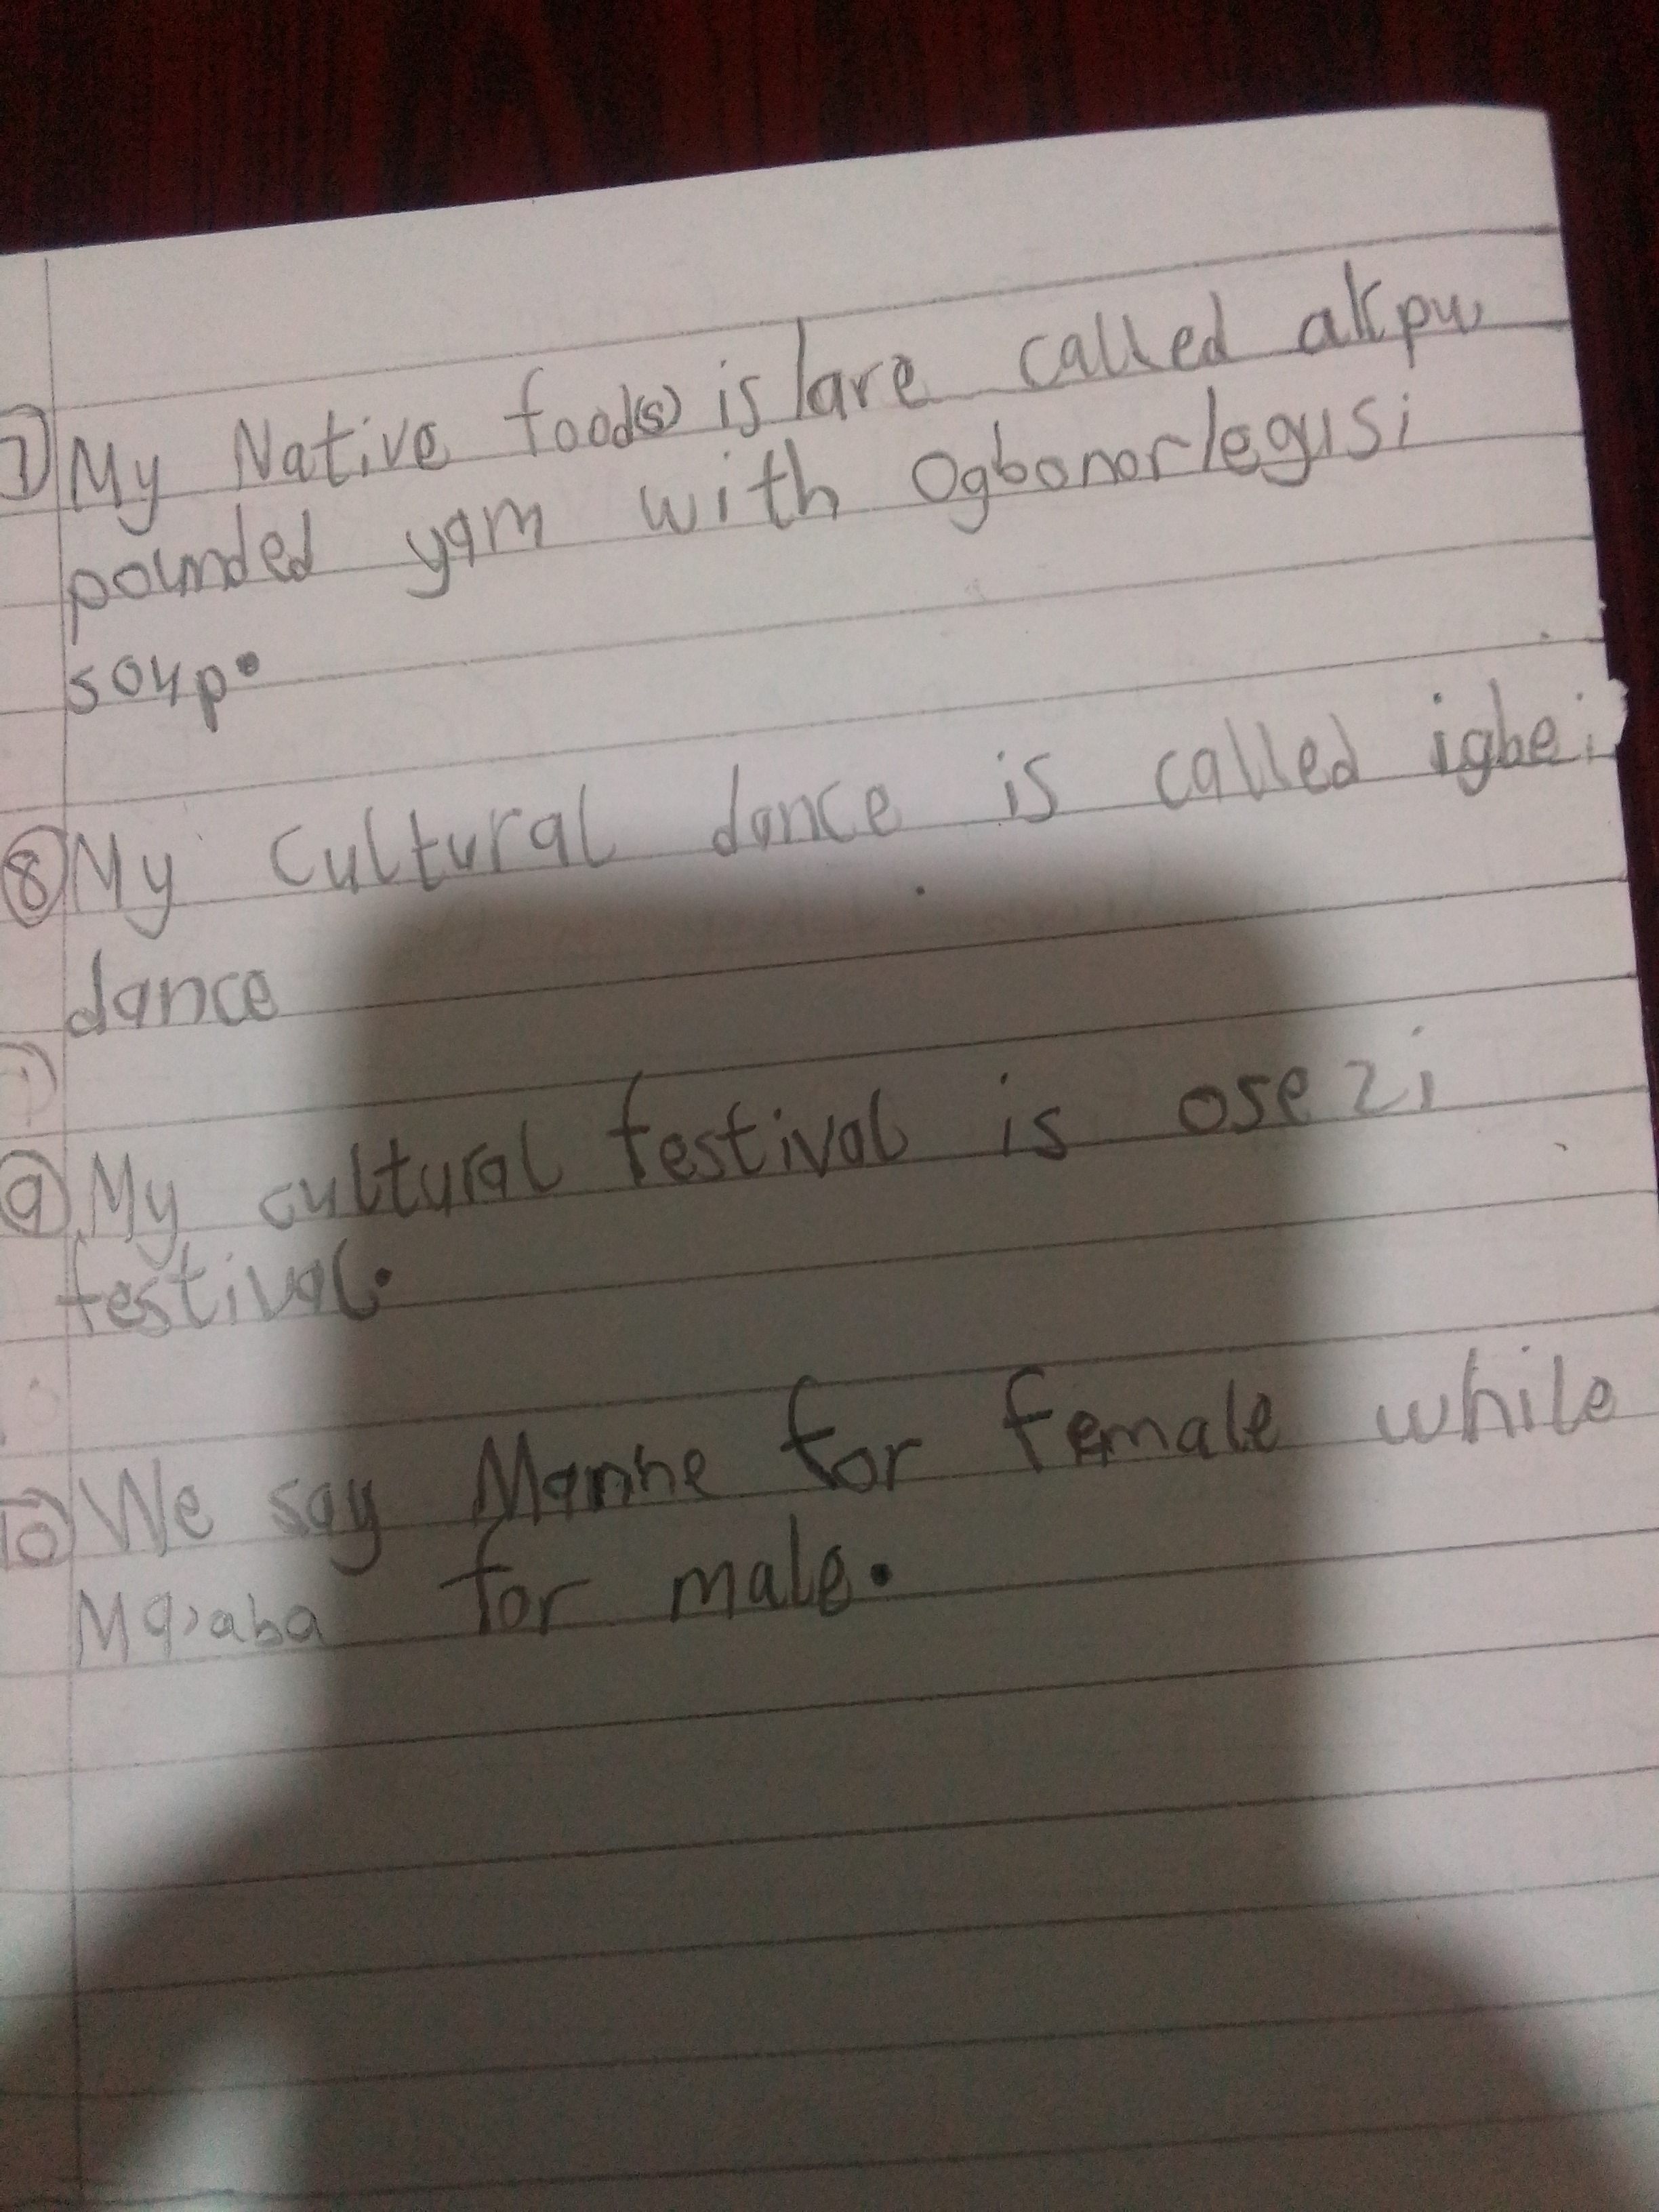 7 My Native food(s) is/are called akpu,
pounded yam with Ogbonor/egusi
soup.
8 My cultural dance is called igbe
dance
9 My cultural festival is osezi
festival.
10 We say Manne for female while
for male.